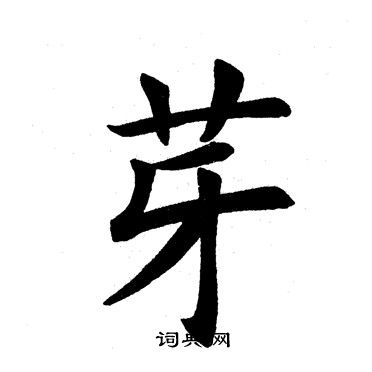 芽
词典网